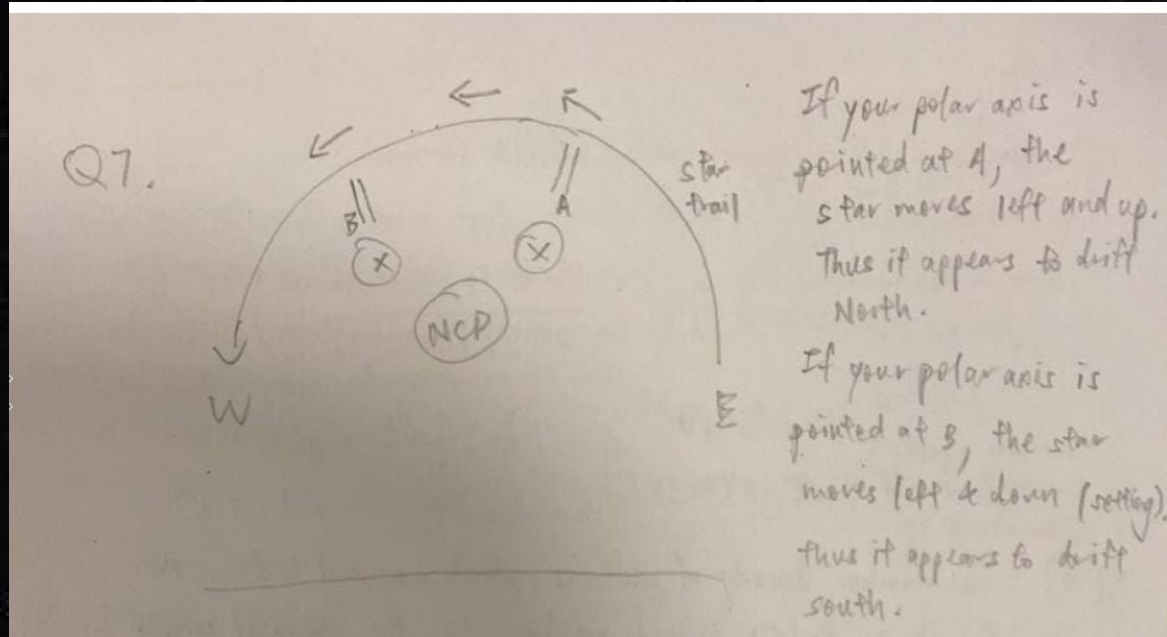 Q7.
B
A
star
trail
NCP
W
E
If your polar axis is
pointed at A, the
star moves left and up.
Thus it appears to drift
North.
If your polar axis is
pointed at B, the star
moves left & down (setting).
thus it appears to drift
south.